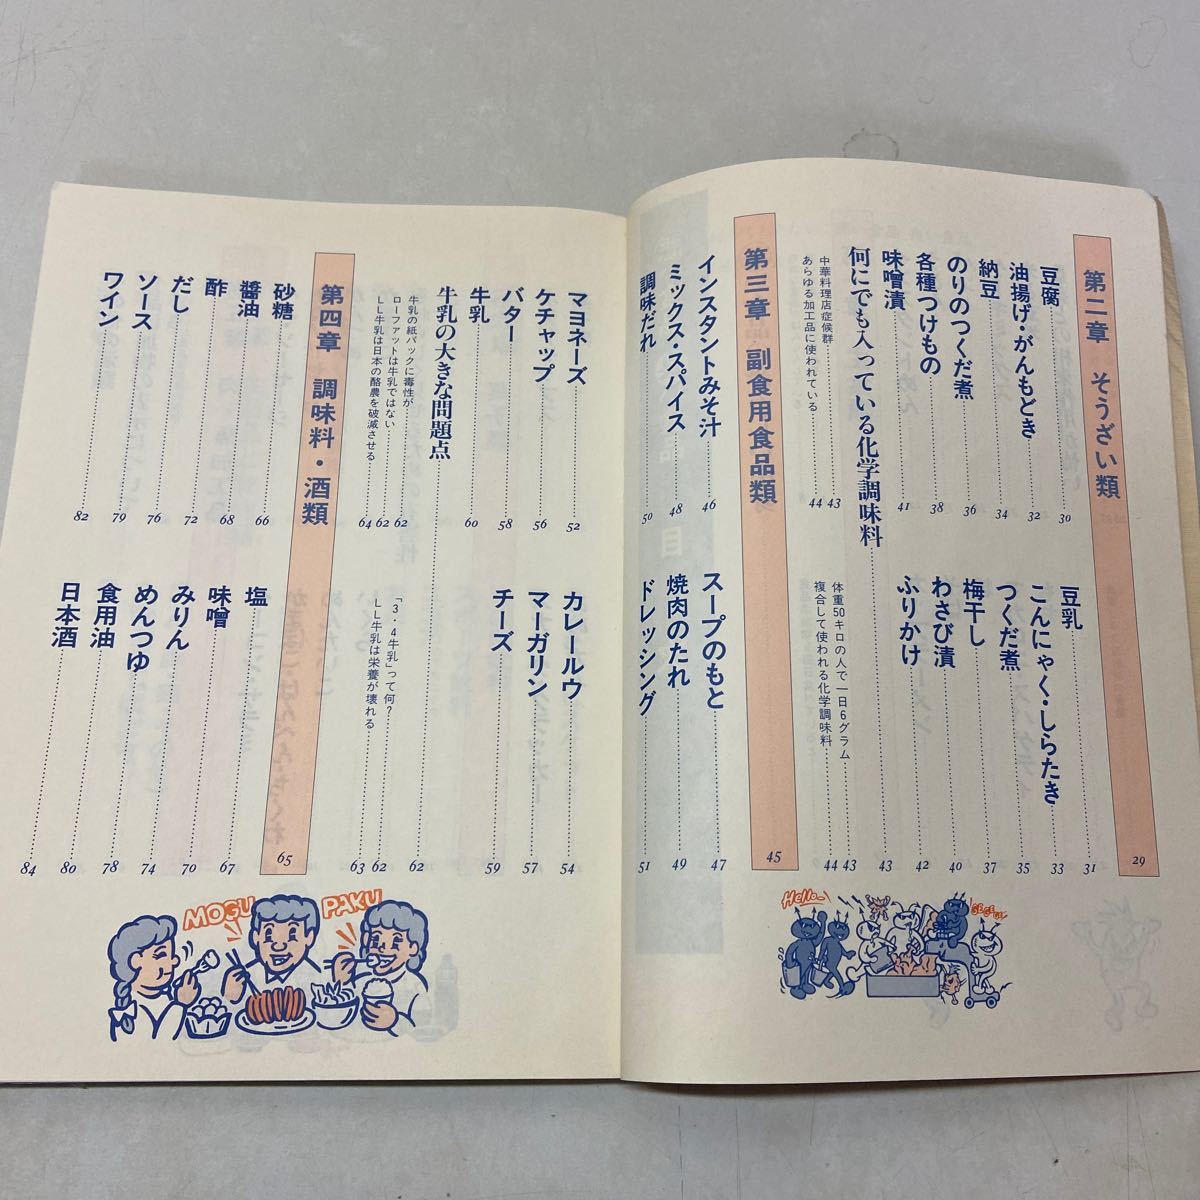 第二章 そうざい類 29
豆腐 30
豆乳 31
油揚げ・がんもどき 32
こんにゃく・しらたき 33
納豆 34
つくだ煮 35
のりのつくだ煮 36
梅干し 37
各種つけもの 38
わさび漬 40
味噌漬 41
ふりかけ 42
何にでも入っている化学調味料 43
中華料理店症候群 43
体重50キロの人で一日6グラム 43
あらゆる加工品に使われている 44
複合して使われる化学調味料 44
第三章 副食用食品類 45
インスタントみそ汁 46
スープのもと 47
ミックス・スパイス 48
焼肉のたれ 49
調味だれ 50
ドレッシング 51
マヨネーズ 52
カレールウ 54
ケチャップ 56
マーガリン 57
バター 58
チーズ 59
牛乳 60
牛乳の大きな問題点 62
牛乳の紙パックに毒性が 62
「3・4牛乳」って何? 62
ローファットは牛乳ではない 62
LL牛乳は栄養が壊れる 63
LL牛乳は日本の酪農を破滅させる 64
第四章 調味料・酒類 65
砂糖 66
塩 67
醬油 68
味噌 69
酢
みりん 70
だし 72
めんつゆ 74
ソース 76
食用油 78
ワイン 82
日本酒 84
79
80
Hello
GEGEGE
MOGU
PAKU